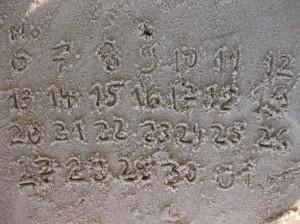 Mo
6 7 8 9 10 11 12
13 14 15 16 17 18 19
20 21 22 23 24 25 26
27 28 29 30 01